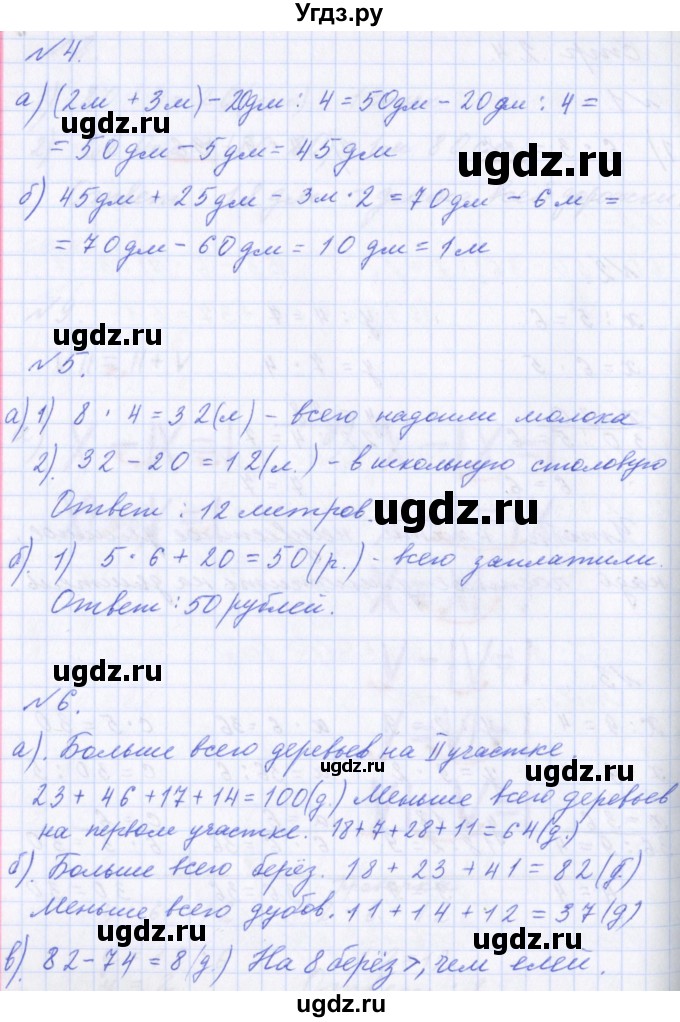 Угдз.ру
№4.
а) (2м + 3м) - 20дм : 4 = 50дм - 20дм : 4 =
ugdz.ru
ugdz.ru
= 50дм - 5дм = 45дм
б) 45дм + 25дм - 3м · 2 = 70дм - 6м =
= 70дм - 60дм = 10дм = 1м
ugdz.ru
ugdz.ru
№5.
а) 1) 8 · 4 = 32(л) - всего надоили молока
2). 32 - 20 = 12(л.) - в школьную столовую
ugdz.ru
ugdz.ru
Ответ : 12 метров.
б). 1) 5 · 6 + 20 = 50(р.) - всего заплатили.
Ответ : 50 рублей.
ugdz.ru
№6.
а). Больше всего деревьев на II участке.
ugdz.ru
ugdz.ru
23 + 46 + 17 + 14 = 100(д) Меньше всего деревьев
на первом участке. 18 + 7 + 28 + 11 = 64(д.)
б). Больше всего берёз. 18 + 23 + 41 = 82(б.)
Меньше всего дубов. 11 + 14 + 12 = 37(д)
ugdz.ru
ugdz.ru
в). 82 - 74 = 8(д.) На 8 берёз >, чем елей.
ugdz.ru